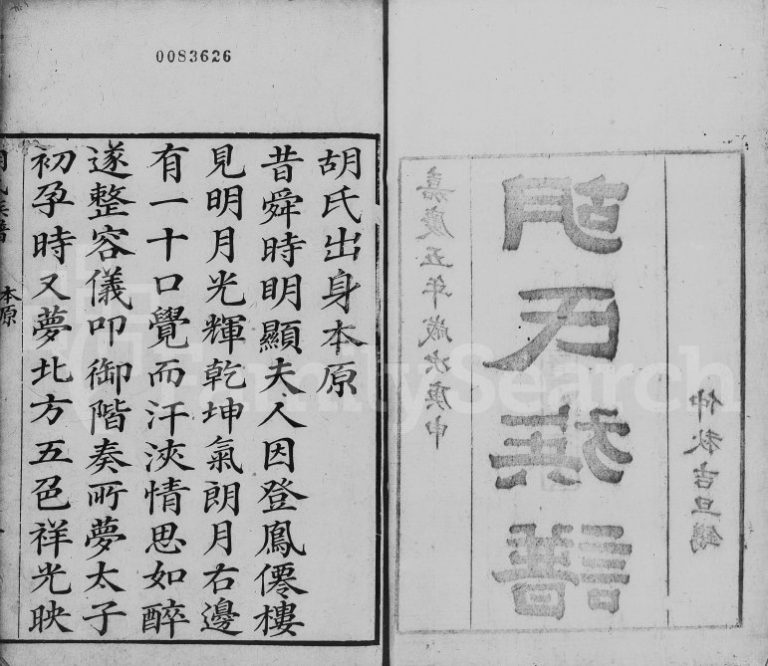 0083626
嘉慶五年歲次庚申
胡氏族譜
仲秋吉旦鐫
胡氏出身本原
昔舜時明顯夫人因登鳳僊樓
見明月光輝乾坤氣朗月右邊
有一十口覺而汗浹情思如醉
遂整容儀叩御階奏所夢太子
初孕時又夢北方五色祥光映
本原
FamilySearch